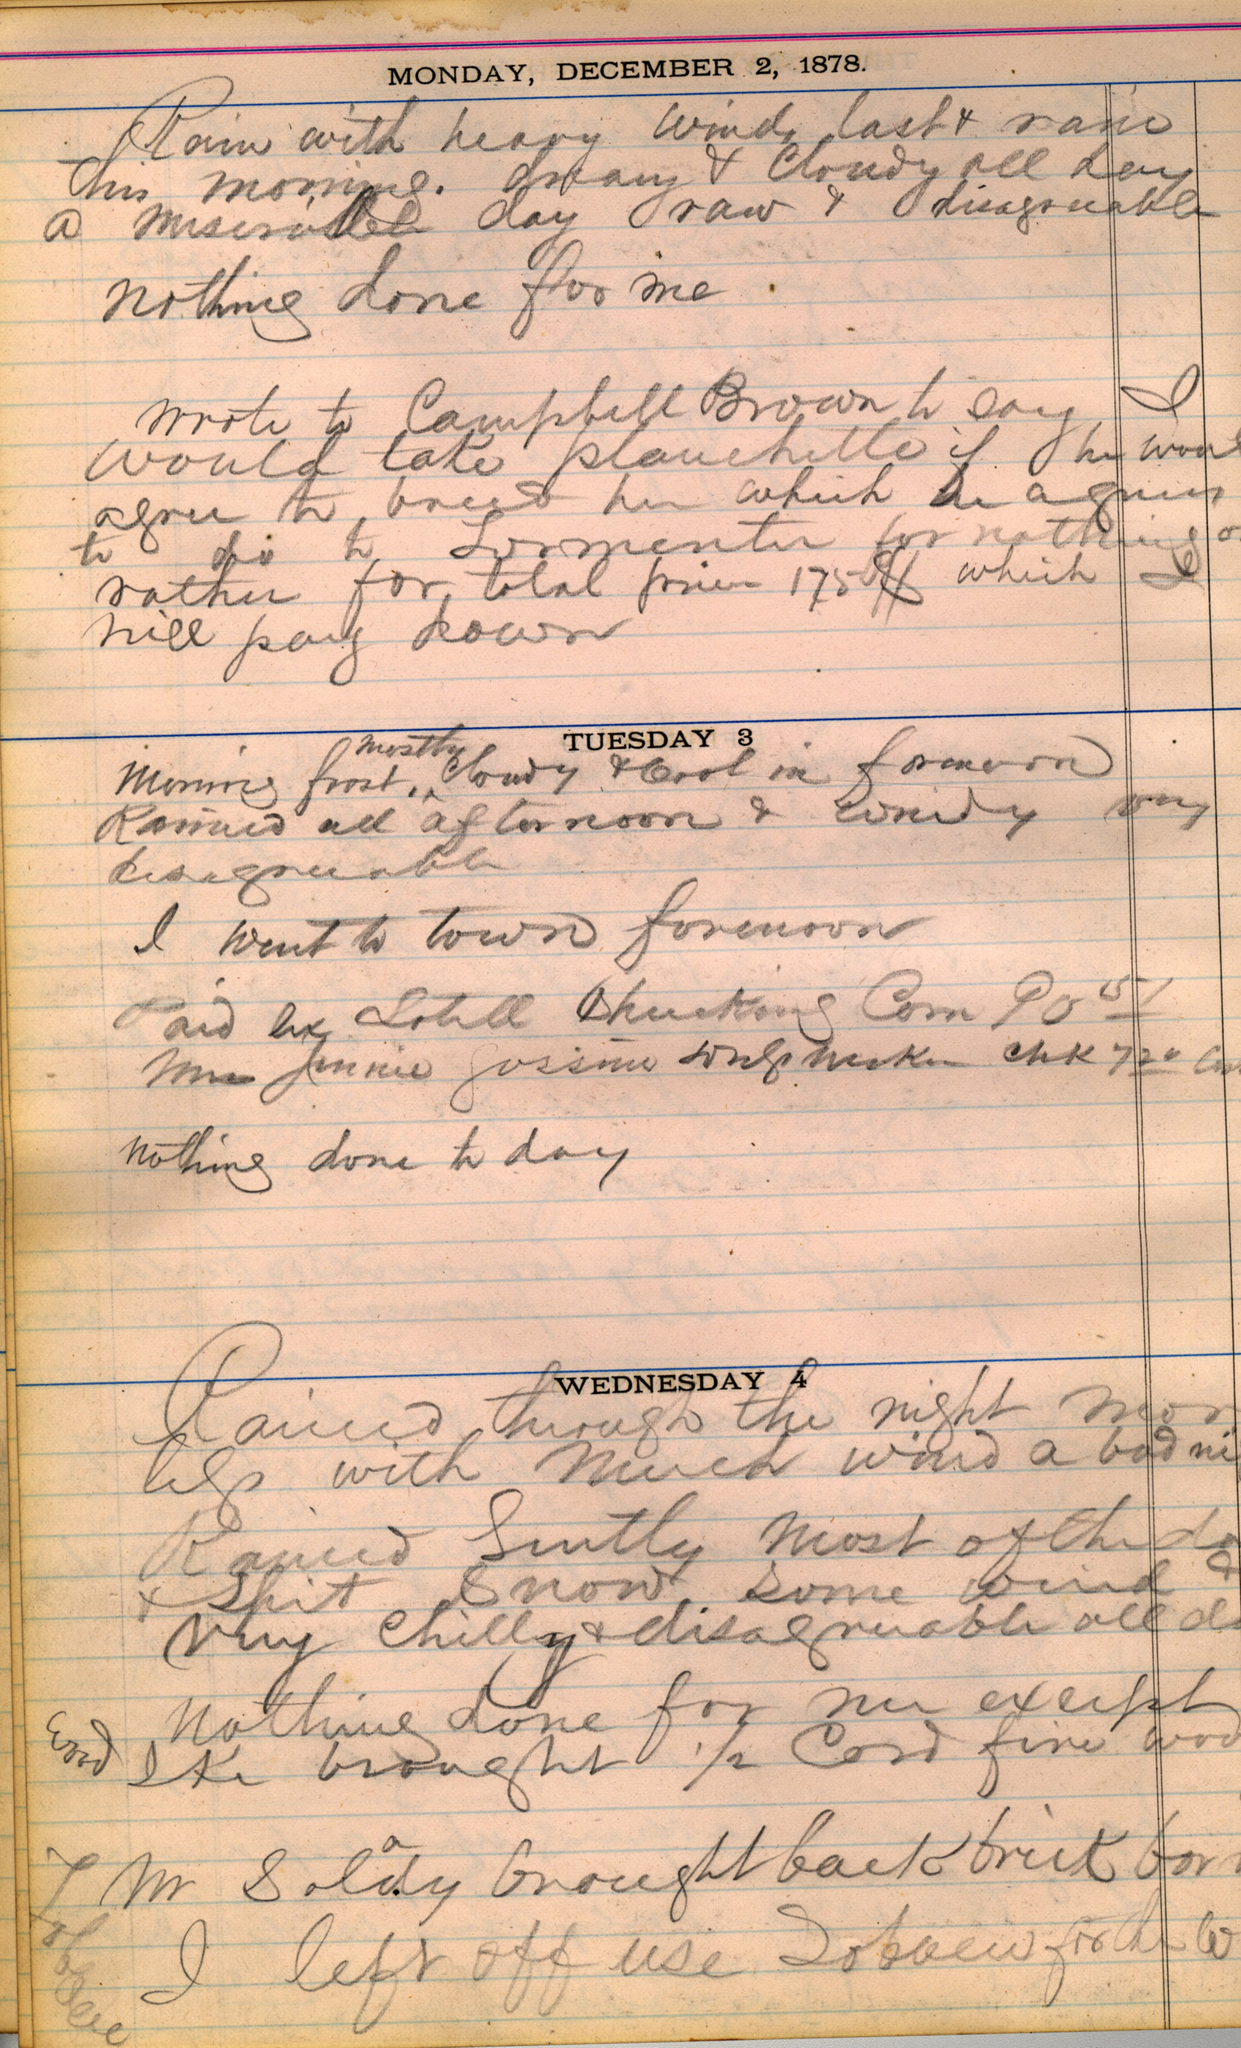 MONDAY, DECEMBER 2, 1878.
Rain with heavy wind, last & rain
this morning. dreary & Cloudy all day
a miserable day raw & disagreeable
nothing done for me
wrote to Campbell Brown to say I
would take planchette if he woul
agree to breed her which he agrees
to do to Tormentor for nothing or
rather for total price 175 which I
will pay down
TUESDAY 3
mostly
Morning frost. Cloudy & Cool in forenoon
Rained all afternoon & windy very
disagreeable
I went to town forenoon
Paid Shucking Corn
Mrs Jennie chk
nothing done to day
WEDNESDAY 4
Rained through the night more
less with much wind a bad ni
Rained Gently most of the da
& Spit Snow some wind &
very chilly & disagreeable all da
Nothing done for me except
Wood Ike brought 1/2 Cord fire woo
Mr Solady brought back brick
I left off use Tobacco for the
Tobacco